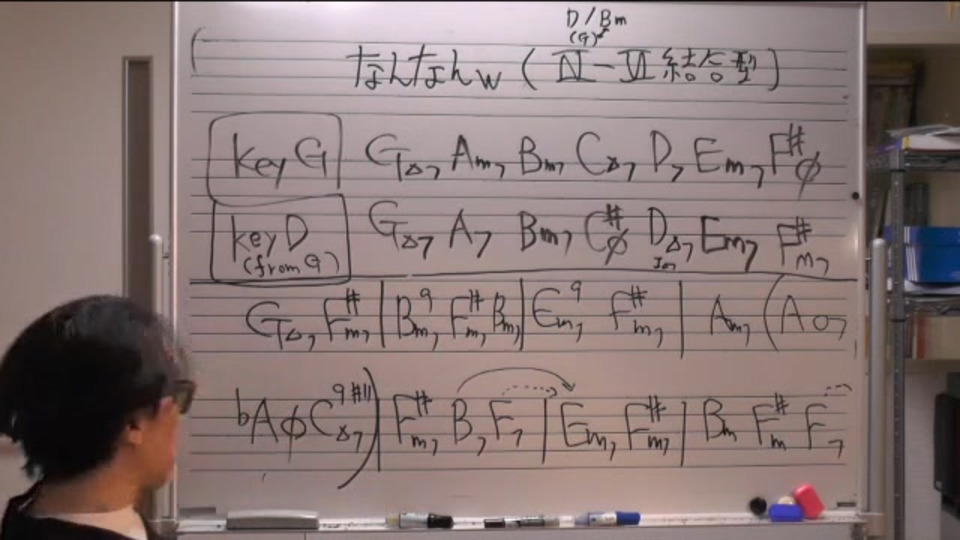 D/Bm
(G)
なんなんw (Ⅳ-Ⅵ 結合型)
key G G△7 Am7 Bm7 C△7 D7 Em7 F#ø
key D (from G) G△7 A7 Bm7 C#ø D△7 Em7 F#m7
Ion
G△7 F#m7 | Bm7 9 F#m7 Bm7 | Em7 9 F#m7 | Am7 (Ao7
bAø C△7 9 #11) | F#m7 B7 F7 | Em7 F#m7 | Bm F#m F7